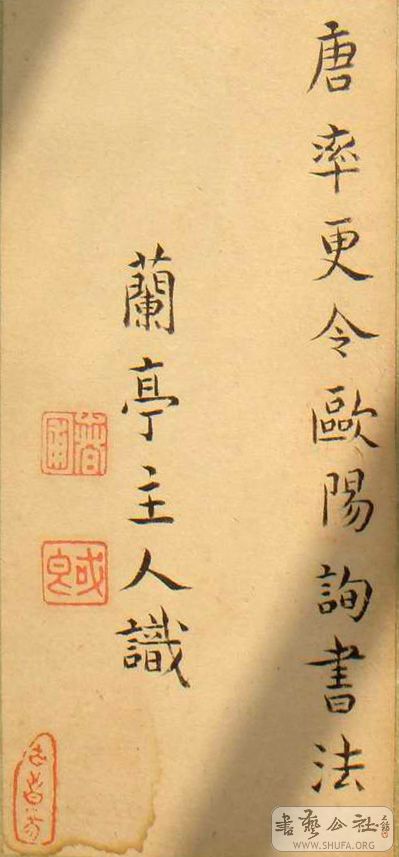 唐率更令歐陽詢書法
蘭亭主人識
書藝公社
WWW.SHUFA.ORG